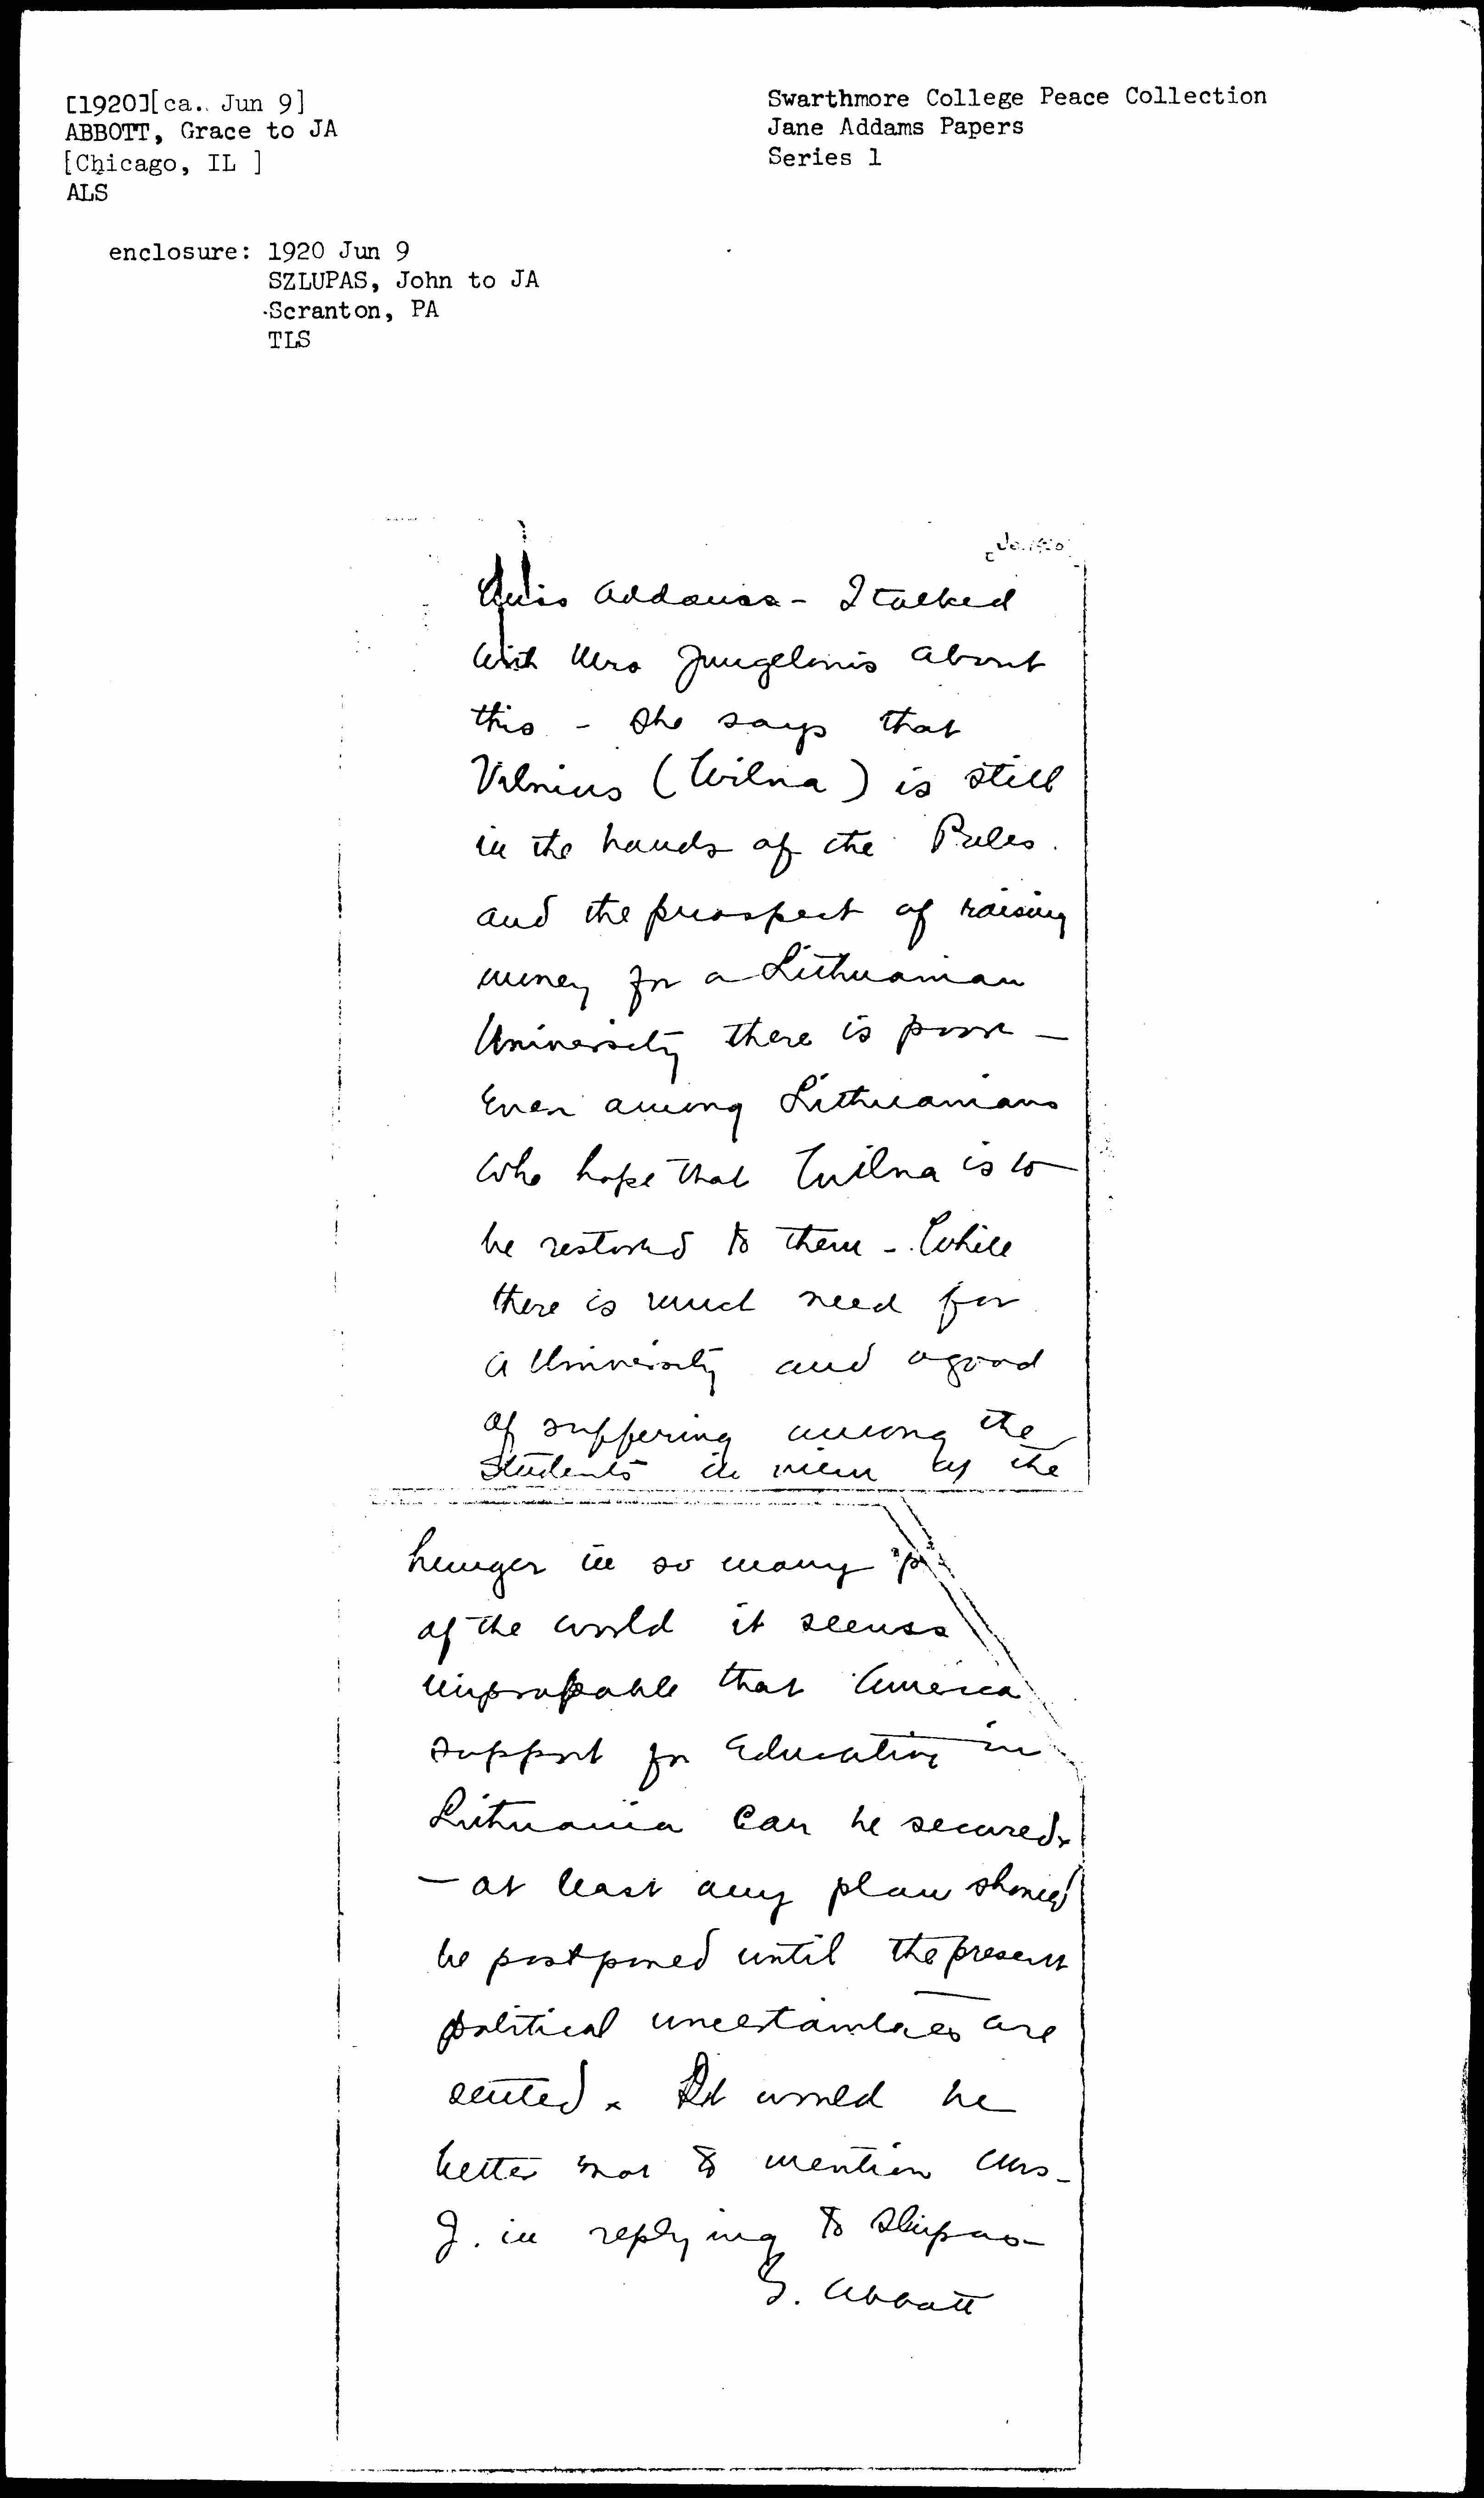 [1920][ca. Jun 9]
ABBOTT, Grace to JA
[Chicago, IL ]
ALS
enclosure: 1920 Jun 9
SZLUPAS, John to JA
Scranton, PA
TLS
Swarthmore College Peace Collection
Jane Addams Papers
Series 1
Miss Addams - I talked
with Mrs Jungelonis about
this - She says that
Vilnius (Wilna) is still
in the hands of the Poles.
and the prospect of raising
money for a Lithuanian
University there is poor -
Even among Lithuanians
who hope that Wilna is to
be restored to them - While
there is much need for
a University and a good
of suffering among the
students in view of the
hunger in so many p
of the world it seems
improbable that America
support for Education in
Lithuania can be secured.
- at least any plan should
be postponed until the present
political uncertainties are
settled. It would be
better not to mention Mrs-
J. in replying to Slupas-
G. Abbott